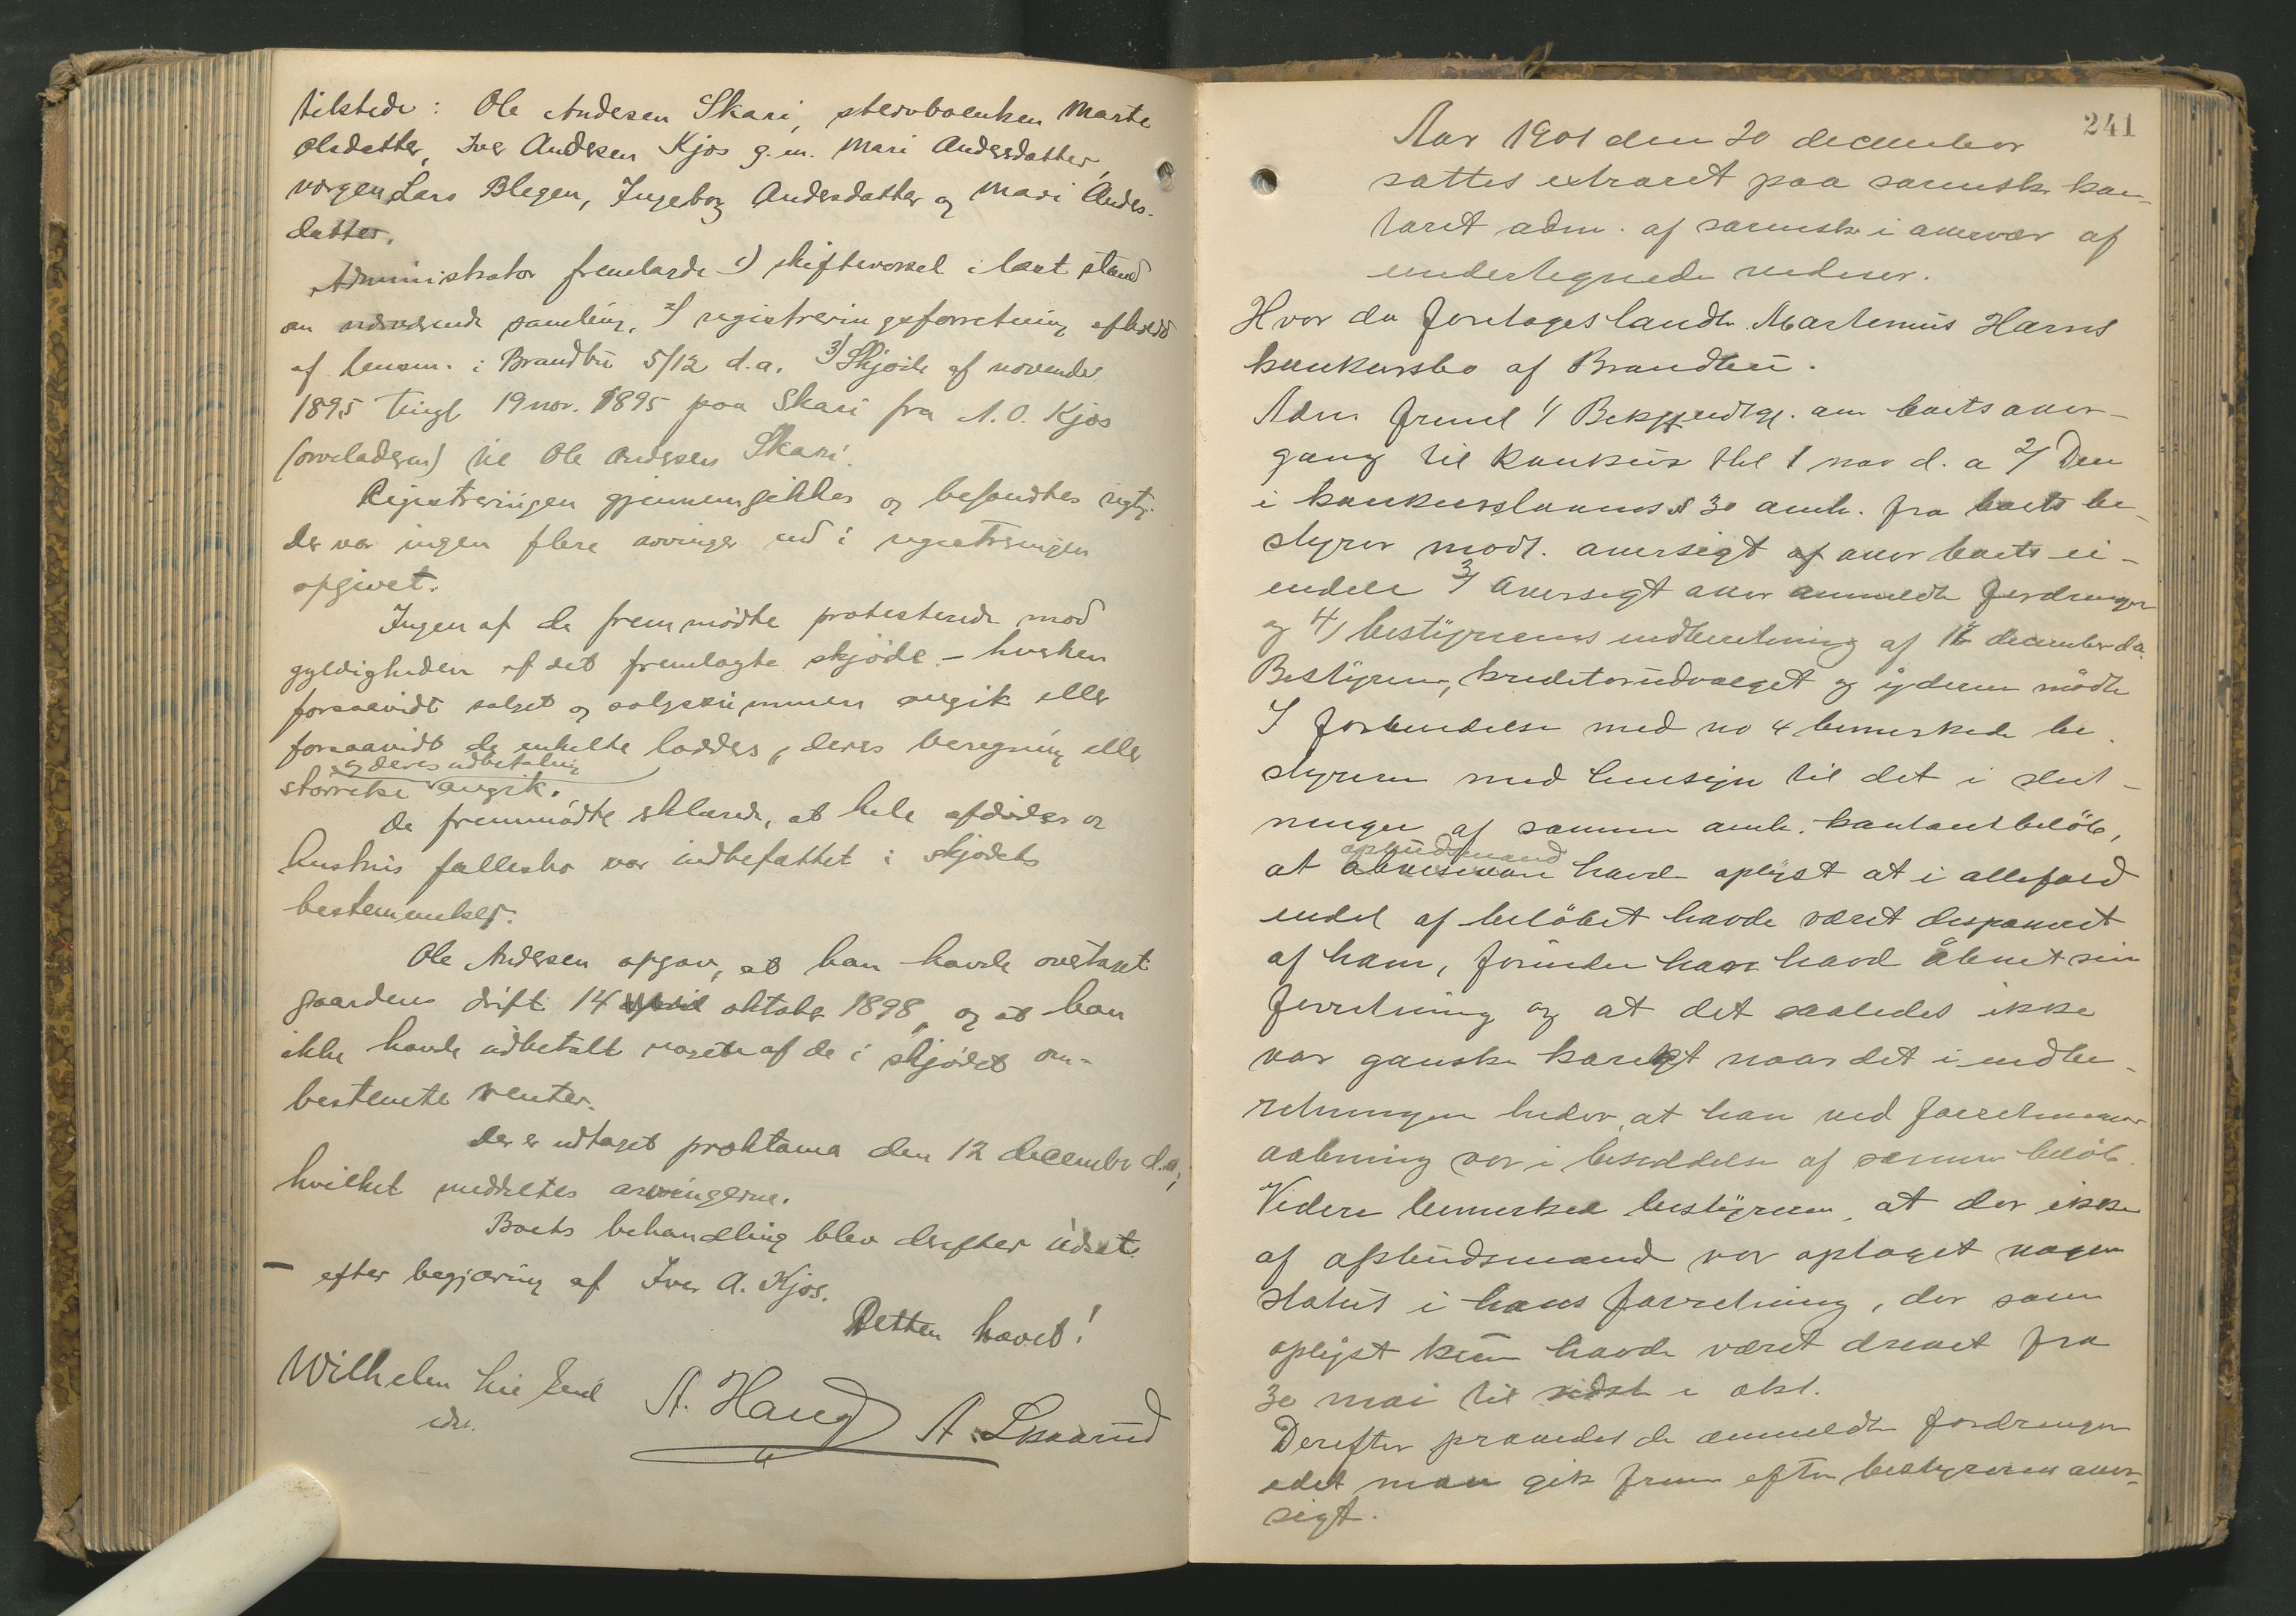 tilstede: Ole Andersen Skari, stervboenken Marte
Olsdatter, Iver Andersen Kjos g.m. Mari Andersdatter,
vergen Lars Blegen, Ingeborg Andersdatter og Mari Anders-
datter.
Administrator fremlagde 1) skiftevarsel i lovl. stand
om nærværende samling, 2) registreringsforretning afholdt
af lensm. i Brandbu 5/12 d.a. 3) Skjøde af november
1895 tingl 19 nov. 1895 paa Skari fra A. O. Kjos
(arveladeren) til Ole Andersen Skari.
Registreringen gjennemgikkes og befandtes rigtig.
der var ingen flere arvinger end i registreringen
opgivet.
Ingen af de fremmødte protesterede mod
gyldigheden af det fremlagte skjøde – hverken
forsaavidt salget og salgssummen angik eller
forsaavidt de enkelte lodder, deres beregning eller
og deres udbetaling
størrelse angik.
De fremmødte erklærede, at hele afdødes og
hustrus fællesbo var indbefattet i skjødets
bestemmelser.
Ole Andersen opgav, at han havde overtaget
gaardens drift 14 april oktober 1898, og at han
ikke havde udbetalt noget af de i skjødet om-
bestemte renter.
Der er udtaget proklama den 12 december d.a.,
hvilket meddeltes arvingerne.
Boets behandling blev derefter udsat
– efter begjæring af Iver A. Kjos.
Retten hævet!
Wilhelm Lie
A. Haug A. Lysaarud
241
Aar 1901 den 20 december
sattes extraret paa sorensk. kon-
toret adm. af sorensk. i overvær af
undertegnede vidner.
Hvor da foretoges landh. Martinius Harns
konkursbo af Brandbu.
Adm freml 1/ Bekjendtgj. om boets over-
gang til konkurs dtd 1 nov d. a 2/ Den
i konkurslovens § 30 omh. fra boets be-
styrer modt. oversigt af over boets ei-
endele 3/ Oversigt over anmeldte fordringer
og 4/ bestyrerens indberetning af 16 december d.a.
Bestyreren, kreditorudvalget og skyldneren mødte
I forbindelse med no 4 bemerkede be-
styreren med hensyn til det i slut-
ningen af samme omh. kontantbeløb,
opbudsmand
at havde oplyst at i allefald
endel af beløbet havde været disponeret
af ham, forinden han havde åbnet sin
forretning og at det saaledes ikke
var ganske korrekt naar det i indbe-
retningen heder, at han ved forretningens
aabning var i besiddelse af samme beløb.
Videre bemerked bestyreren, at der ikke
af opbudsmand var optaget nogen
status i hans forretning, der som
oplyst kun havde været drevet fra
30 mai til sidst i okt.
Derefter prøvedes de anmeldte fordringer
idet man gik frem efter bestyrerens over-
sigt.